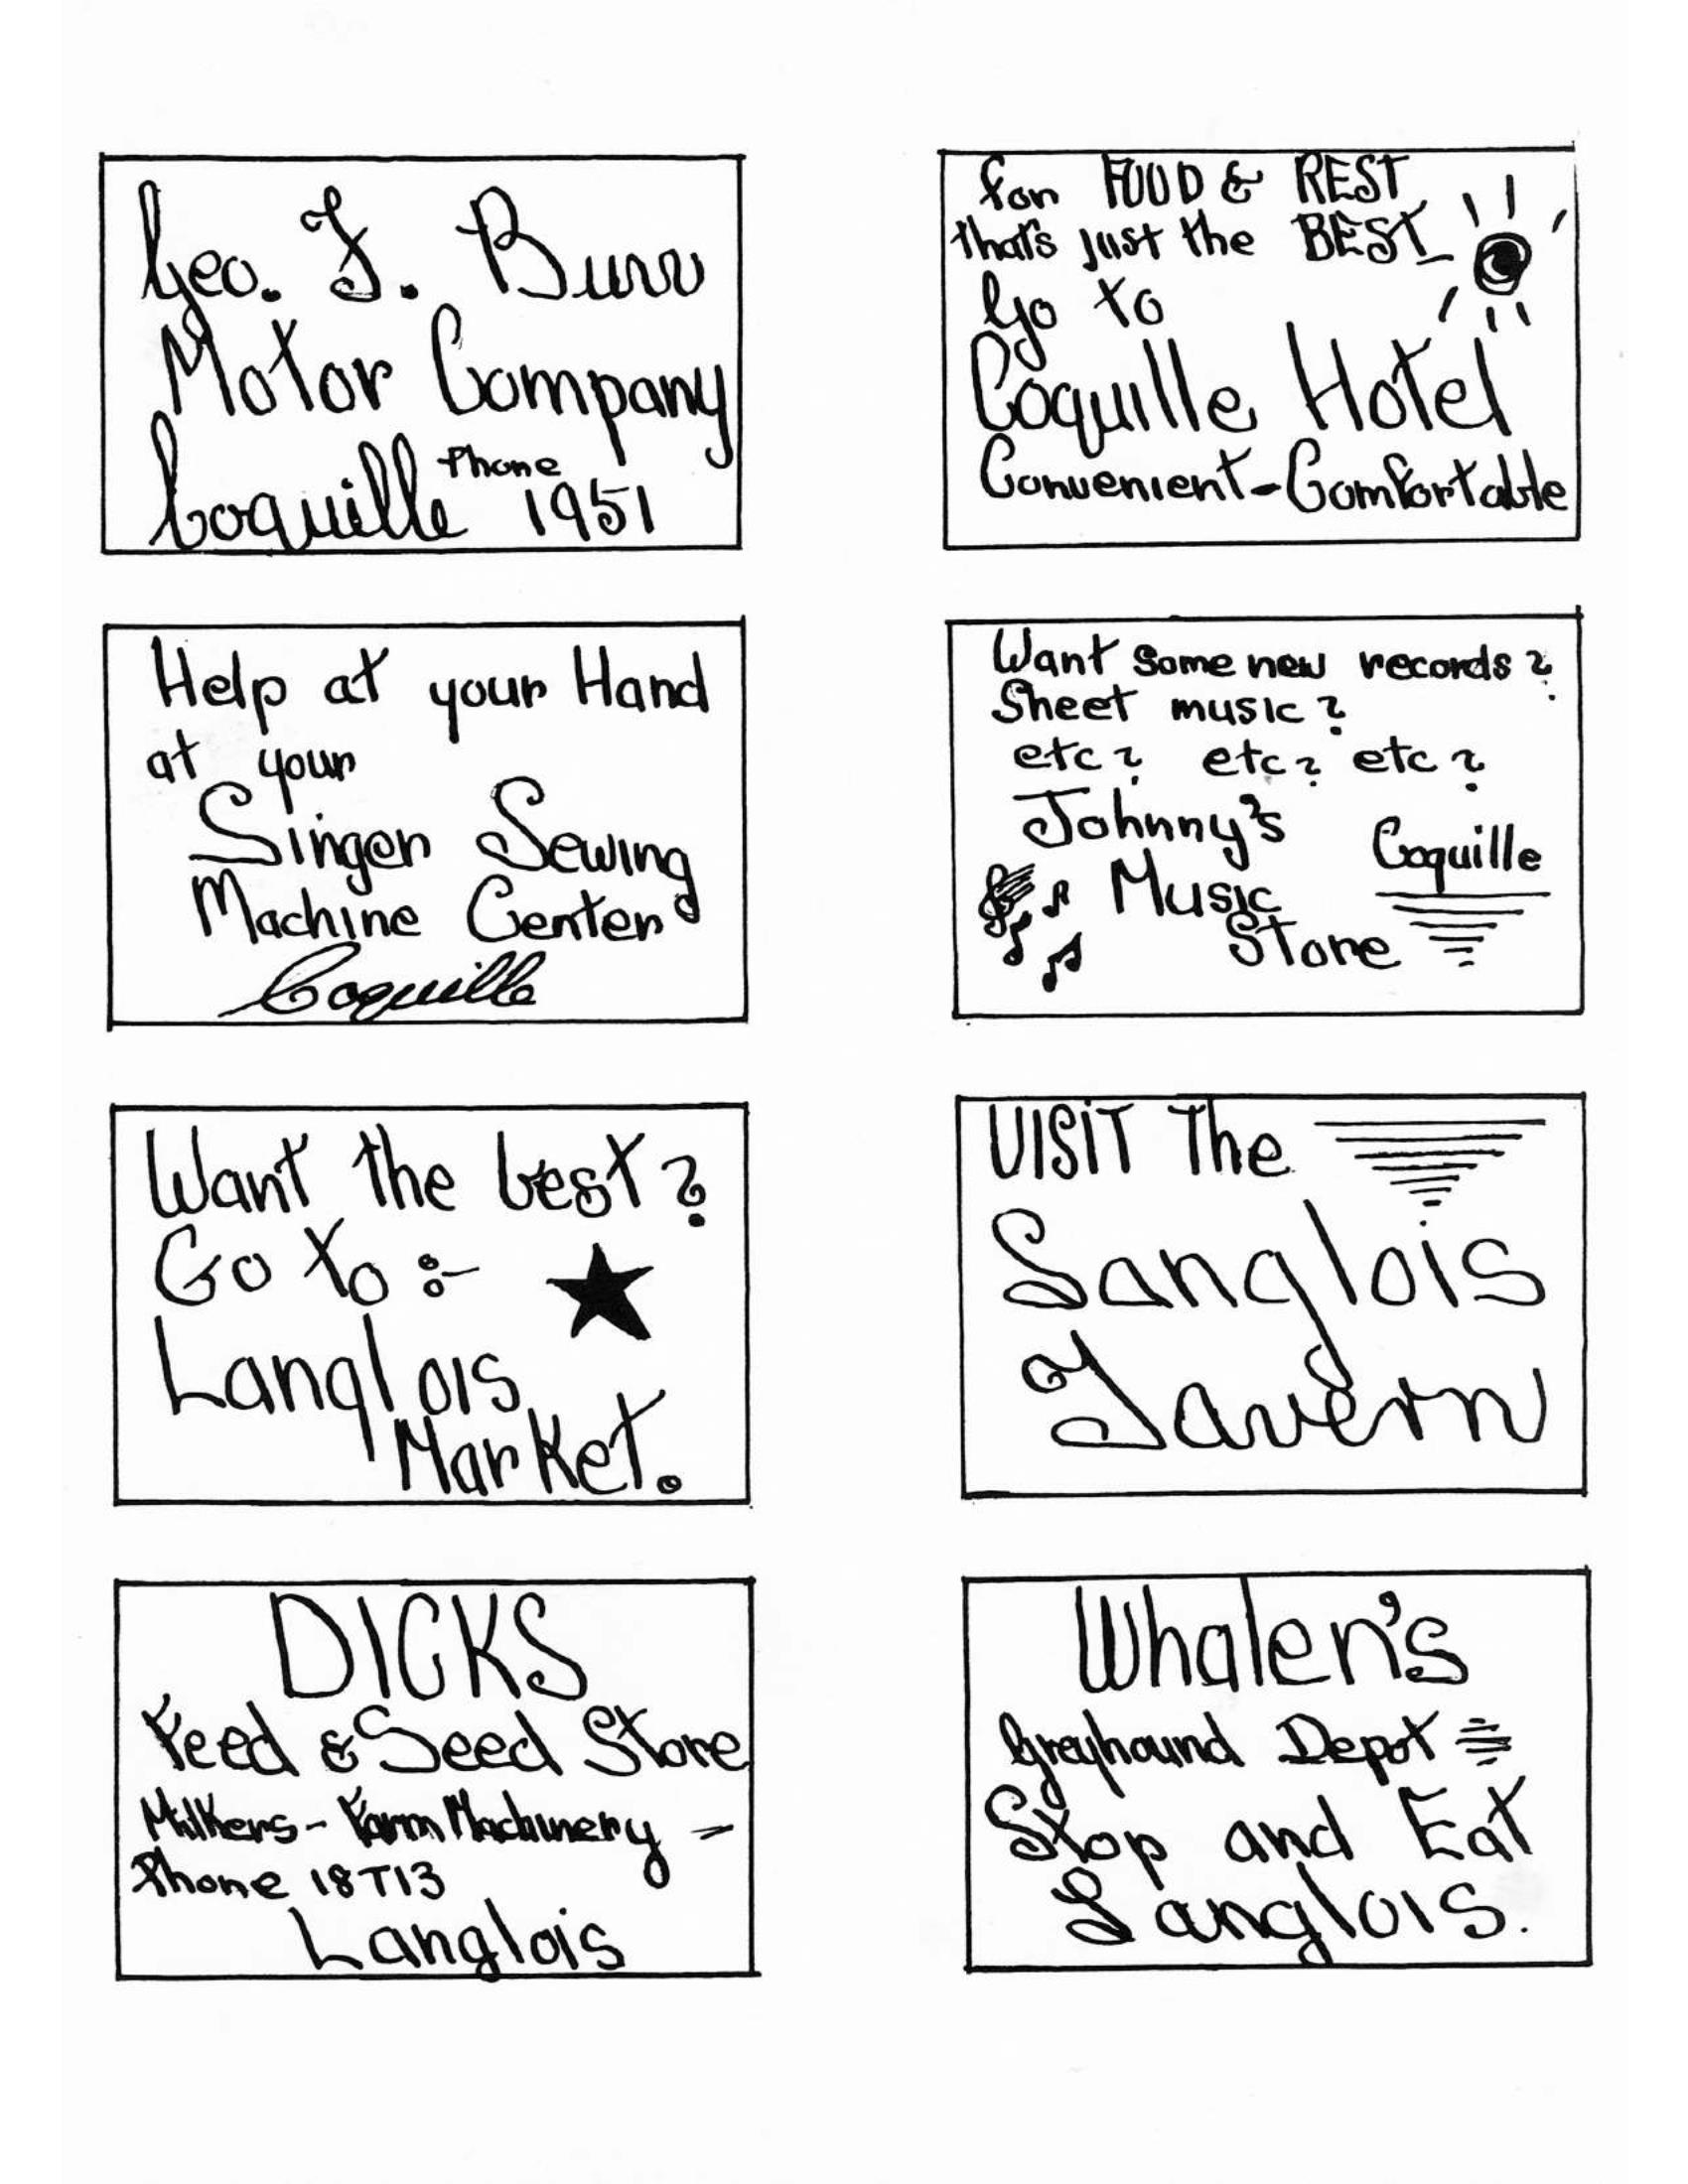 Geo. F. Burr
Motor Company
Coquille Phone 1951
for FOOD & REST
that's just the BEST
Go to
Coquille Hotel
Convenient-Comfortable
Help at your Hand
at your
Singer Sewing
Machine Center
Coquille
Want Some new records?
Sheet music?
etc? etc? etc?
Johnny's
Coquille
Music
Store
Want the best?
Go to:-
Langlois
Market.
VISIT The
Langlois
Tavern
DICKS
Feed & Seed Store
Milkers- Farm Machinery -
Phone 18T13
Langlois
Whalen's
Greyhound Depot
Stop and Eat
Langlois.